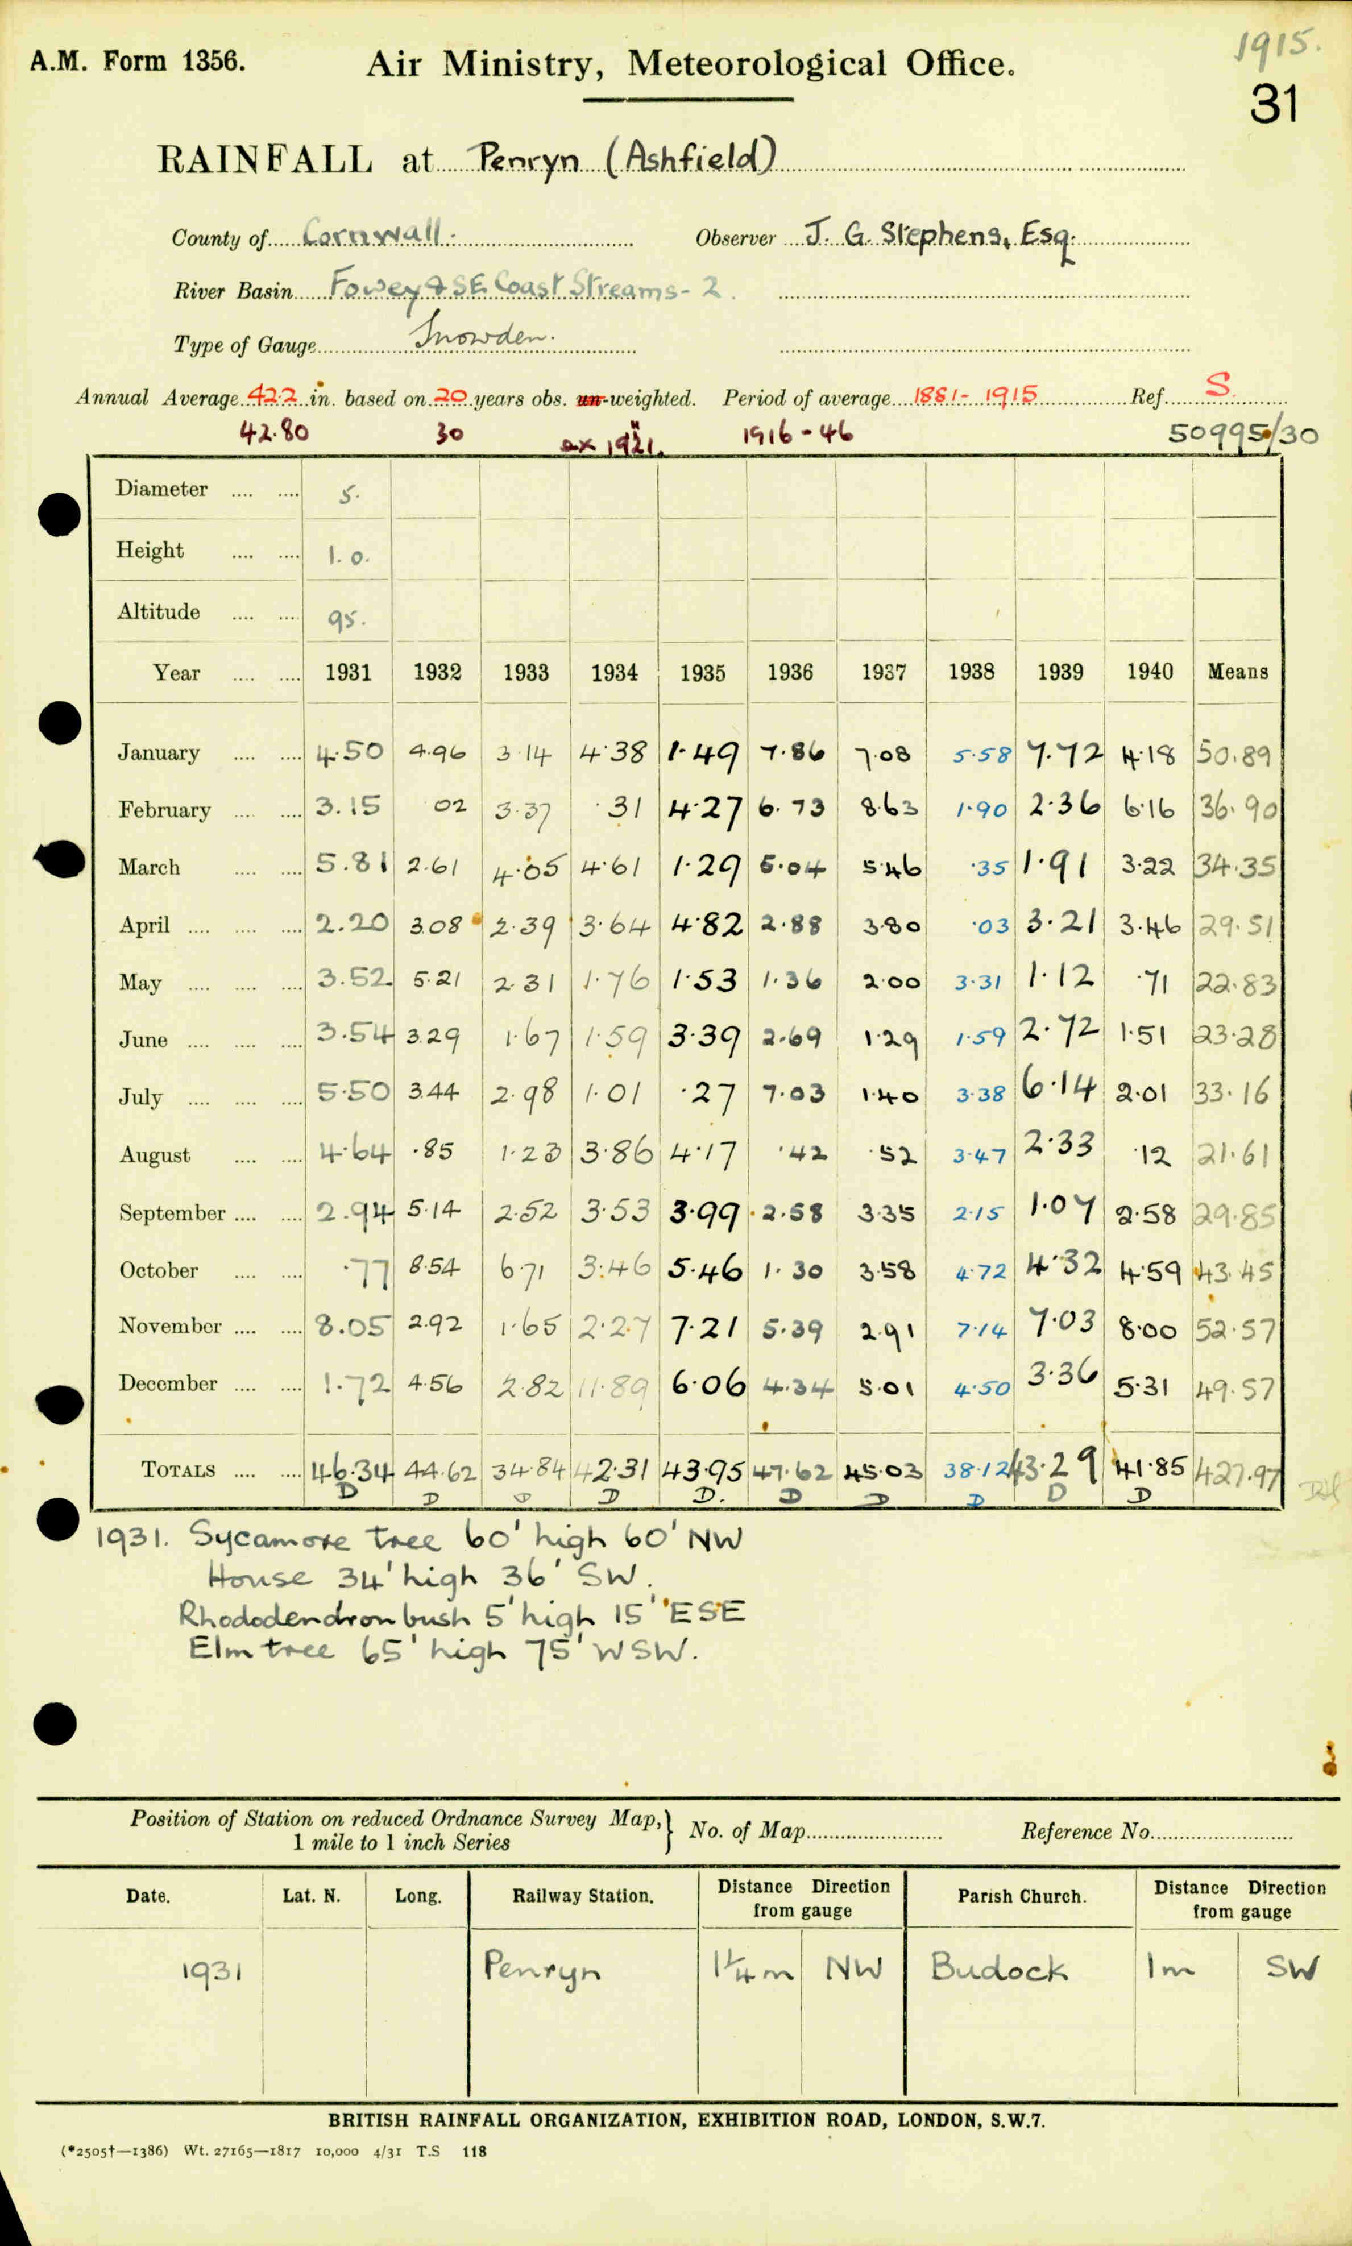 1915.
A.M. Form 1356. Air Ministry, Meteorological Office.
31
RAINFALL at Penryn (Ashfield)
County of Cornwall. Observer J. G. Stephens, Esq.
River Basin Fowey & SE Coast Streams - 2.
Type of Gauge Snowden.
Annual Average 42.2 in. based on 20 years obs. un-weighted. Period of average 1881-1915 Ref. S.
42.80 30 ex 1921. 1916-46 50995/30
Diameter .... .... 5.
Height .... .... 1.0.
Altitude .... .... 95.
Year .... .... 1931 1932 1933 1934 1935 1936 1937 1938 1939 1940 Means
January .... .... 4.50 4.96 3.14 4.38 1.49 7.86 7.08 5.58 7.72 4.18 50.89
February .... .... 3.15 02 3.37 .31 4.27 6.73 8.63 1.90 2.36 6.16 36.90
March .... .... 5.81 2.61 4.05 4.61 1.29 5.04 5.46 .35 1.91 3.22 34.35
April .... .... .... 2.20 3.08 2.39 3.64 4.82 2.88 3.80 .03 3.21 3.46 29.51
May .... .... .... 3.52 5.21 2.31 1.76 1.53 1.36 2.00 3.31 1.12 .71 22.83
June .... .... .... 3.54 3.29 1.67 1.59 3.39 2.69 1.29 1.59 2.72 1.51 23.28
July .... .... .... 5.50 3.44 2.98 1.01 .27 7.03 1.40 3.38 6.14 2.01 33.16
August .... .... 4.64 .85 1.23 3.86 4.17 .42 .52 3.47 2.33 .12 21.61
September .... .... 2.94 5.14 2.52 3.53 3.99 2.58 3.35 2.15 1.07 2.58 29.85
October .... .... .77 8.54 6.71 3.46 5.46 1.30 3.58 4.72 4.32 4.59 43.45
November .... .... 8.05 2.92 1.65 2.27 7.21 5.39 2.91 7.14 7.03 8.00 52.57
December .... .... 1.72 4.56 2.82 11.89 6.06 4.34 5.01 4.50 3.36 5.31 49.57
TOTALS .... .... 46.34 44.62 34.84 42.31 43.95 47.62 45.03 38.12 43.29 41.85 427.97
D D D D D. D D D D D
1931. Sycamore tree 60' high 60' NW
House 34' high 36' SW.
Rhododendron bush 5' high 15' ESE
Elm tree 65' high 75' WSW.
Position of Station on reduced Ordnance Survey Map, } No. of Map Reference No.
1 mile to 1 inch Series
Date. Lat. N. Long. Railway Station. Distance Direction from gauge Parish Church. Distance Direction from gauge
1931 Penryn 1¼m NW Budock 1m SW
BRITISH RAINFALL ORGANIZATION, EXHIBITION ROAD, LONDON, S.W.7.
(*2505†—1386) Wt. 27165—1817 10,000 4/31 T.S 118